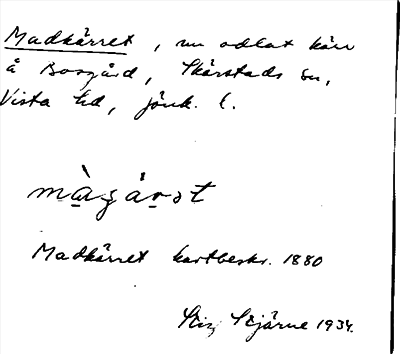 Madkärret, nu odlat kärr
å Bosgård, Skärstads sn,
Vista hd, Jönk. l.
Madkärret kartbeskr. 1880
Stig Stjärne 1934.